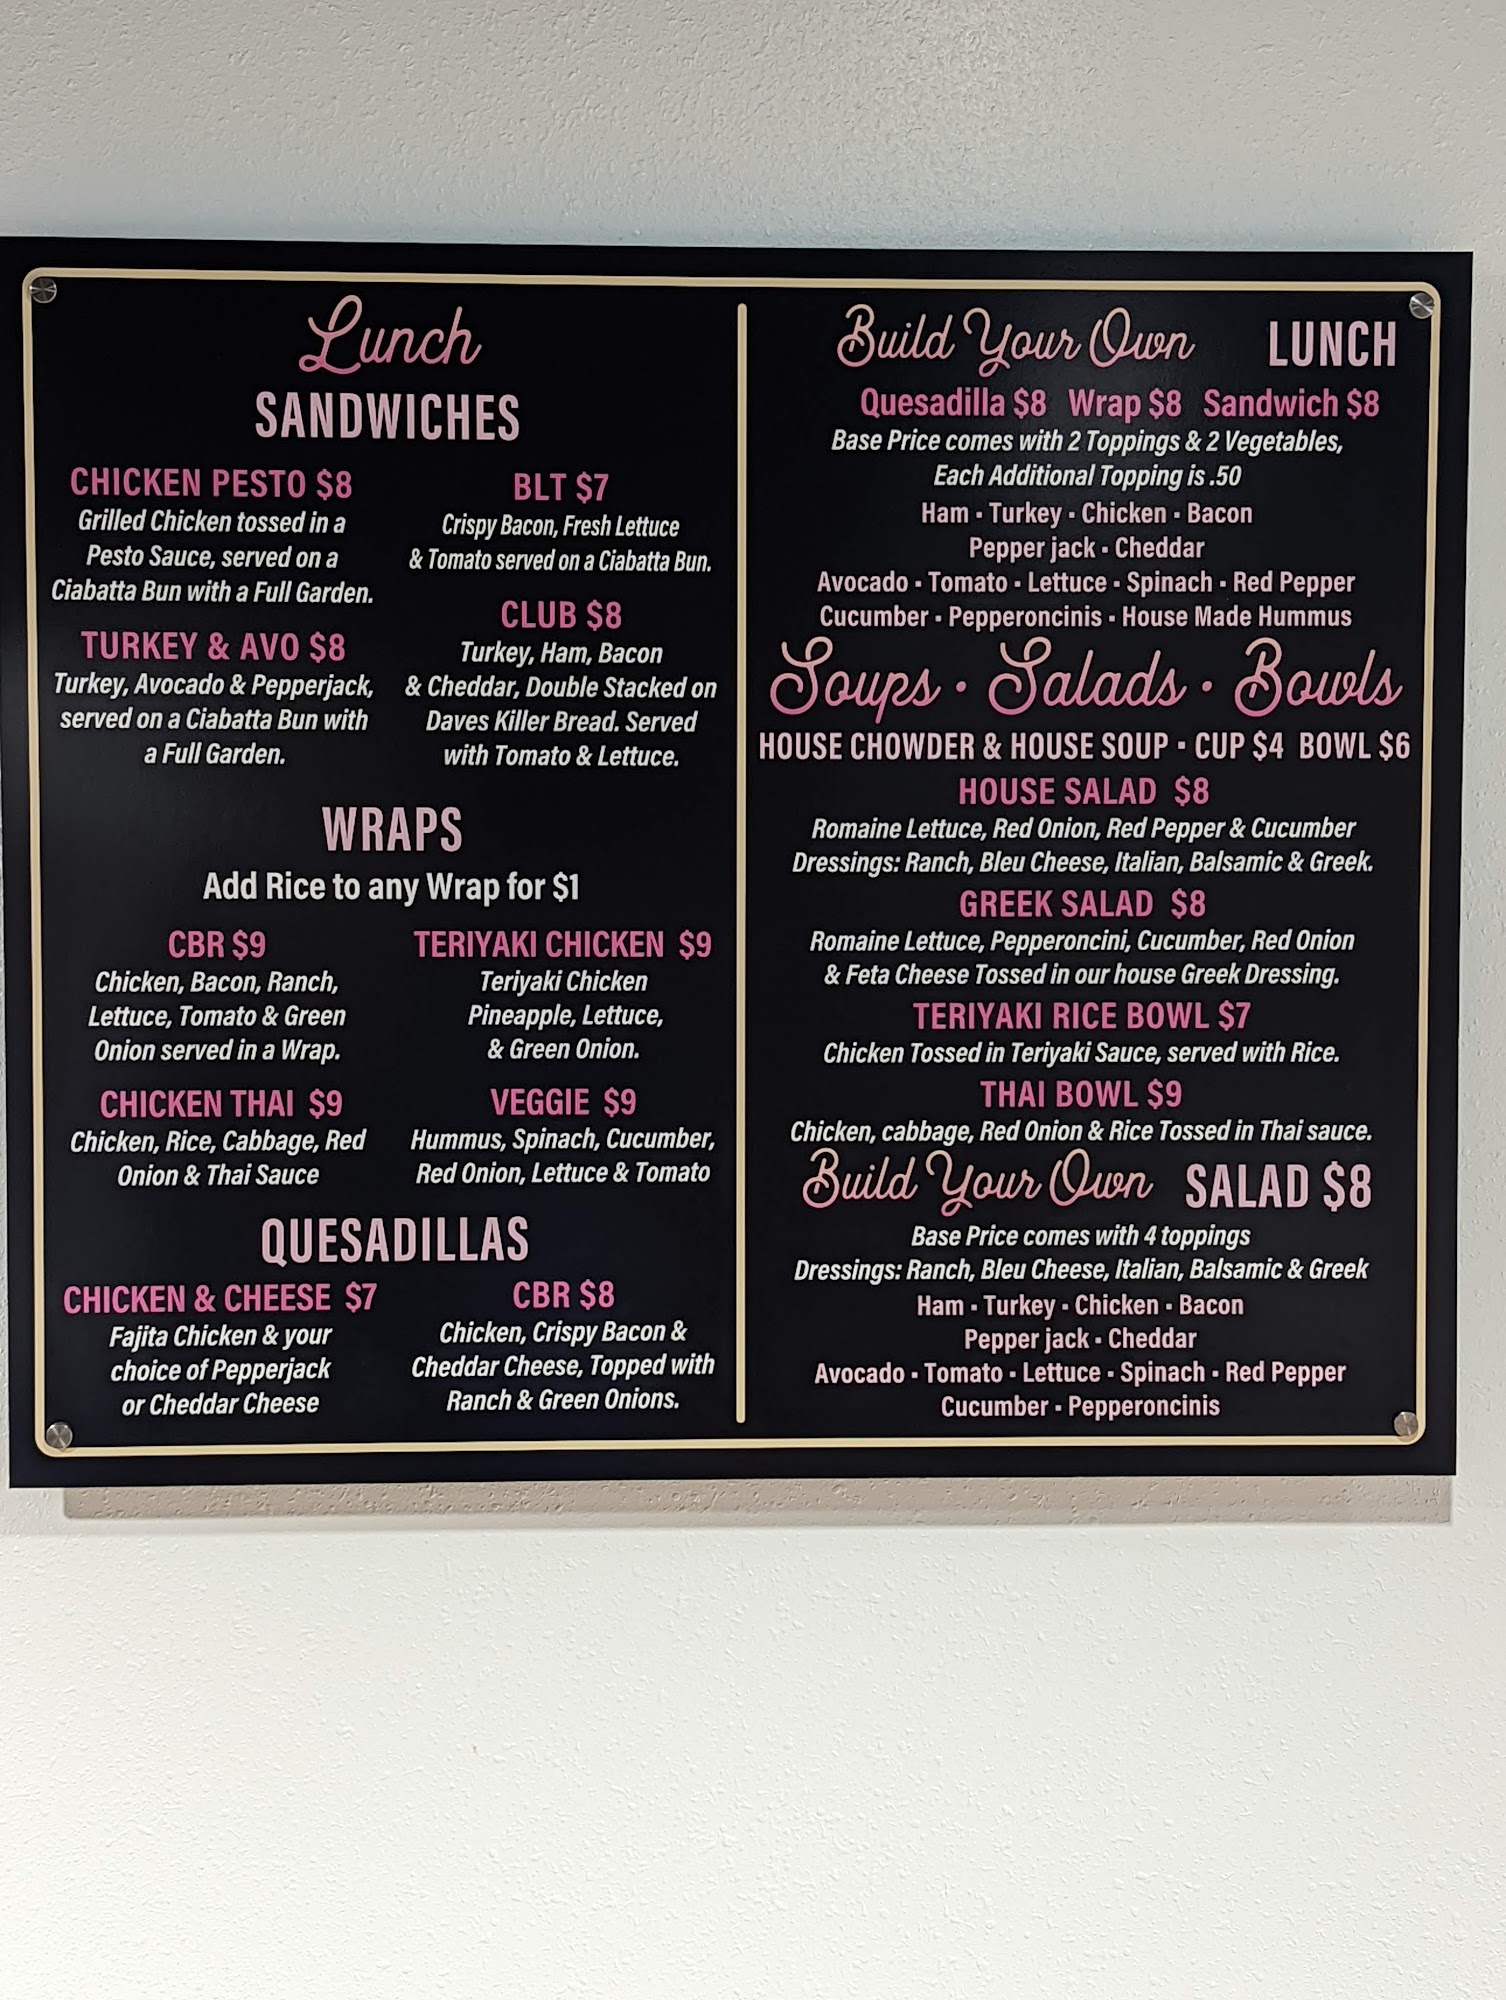 Lunch
SANDWICHES
CHICKEN PESTO $8
Grilled Chicken tossed in a
Pesto Sauce, served on a
Ciabatta Bun with a Full Garden.
TURKEY & AVO $8
Turkey, Avocado & Pepperjack,
served on a Ciabatta Bun with
a Full Garden.
BLT $7
Crispy Bacon, Fresh Lettuce
& Tomato served on a Ciabatta Bun.
CLUB $8
Turkey, Ham, Bacon
& Cheddar, Double Stacked on
Daves Killer Bread. Served
with Tomato & Lettuce.
WRAPS
Add Rice to any Wrap for $1
CBR $9
Chicken, Bacon, Ranch,
Lettuce, Tomato & Green
Onion served in a Wrap.
CHICKEN THAI $9
Chicken, Rice, Cabbage, Red
Onion & Thai Sauce
TERIYAKI CHICKEN $9
Teriyaki Chicken
Pineapple, Lettuce,
& Green Onion.
VEGGIE $9
Hummus, Spinach, Cucumber,
Red Onion, Lettuce & Tomato
QUESADILLAS
CHICKEN & CHEESE $7
Fajita Chicken & your
choice of Pepperjack
or Cheddar Cheese
CBR $8
Chicken, Crispy Bacon &
Cheddar Cheese, Topped with
Ranch & Green Onions.
Build Your Own LUNCH
Quesadilla $8 Wrap $8 Sandwich $8
Base Price comes with 2 Toppings & 2 Vegetables,
Each Additional Topping is .50
Ham • Turkey • Chicken • Bacon
Pepper jack • Cheddar
Avocado • Tomato • Lettuce • Spinach • Red Pepper
Cucumber • Pepperoncinis • House Made Hummus
Soups • Salads • Bowls
HOUSE CHOWDER & HOUSE SOUP • CUP $4 BOWL $6
HOUSE SALAD $8
Romaine Lettuce, Red Onion, Red Pepper & Cucumber
Dressings: Ranch, Bleu Cheese, Italian, Balsamic & Greek.
GREEK SALAD $8
Romaine Lettuce, Pepperoncini, Cucumber, Red Onion
& Feta Cheese Tossed in our house Greek Dressing.
TERIYAKI RICE BOWL $7
Chicken Tossed in Teriyaki Sauce, served with Rice.
THAI BOWL $9
Chicken, cabbage, Red Onion & Rice Tossed in Thai sauce.
Build Your Own SALAD $8
Base Price comes with 4 toppings
Dressings: Ranch, Bleu Cheese, Italian, Balsamic & Greek
Ham • Turkey • Chicken • Bacon
Pepper jack • Cheddar
Avocado • Tomato • Lettuce • Spinach • Red Pepper
Cucumber • Pepperoncinis